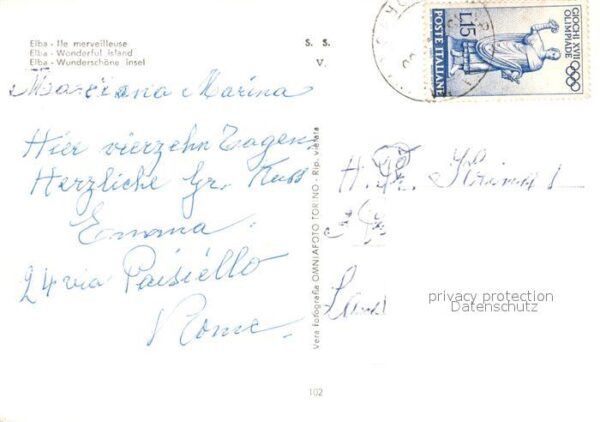 Elba - Ile merveilleuse
Elba - Wonderful island
Elba - Wunderschöne insel
S. S.
V.
Marciana Marina
Hier vierzehn Tagen
Herzliche Gr. Kuss
Emma
24 via Paisiello
Rome
Vera fotografia OMNIAFOTO TORINO - Rip. vietata
102
GIOCHI XVII OLIMPIADE
L.15
POSTE ITALIANE
H.
privacy protection
Datenschutz